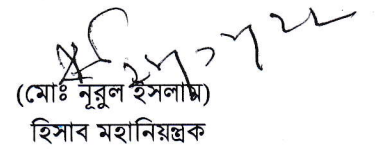 (মোঃ নূরুল ইসলাম)
হিসাব মহানিয়ন্ত্রক